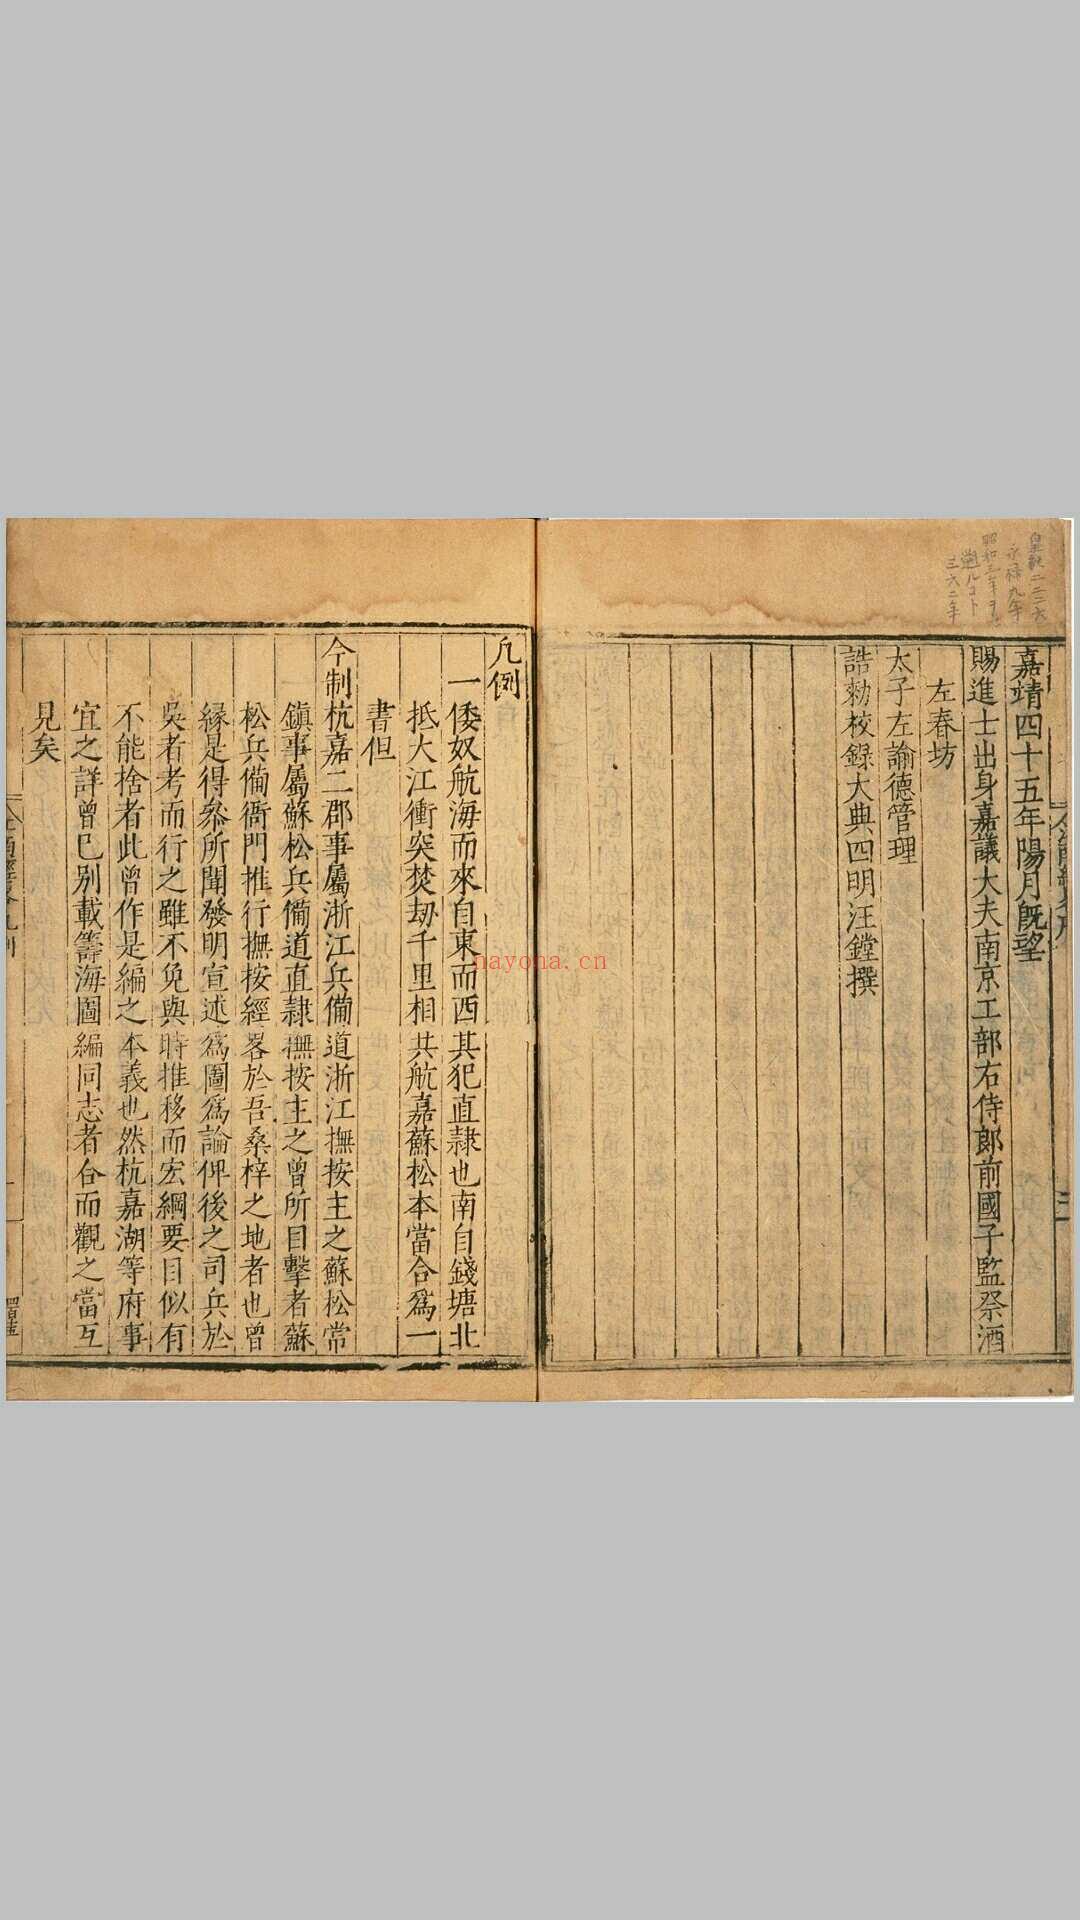 嘉靖四十五年陽月既望
賜進士出身嘉議大夫南京工部右侍郎前國子監祭酒
左春坊
太子左諭德管理
誥勑校録大典四明汪鏜撰
凡例
一倭奴航海而來自東而西其犯直隷也南自錢塘北
抵大江衝突焚劫千里相共航嘉蘇松本當合爲一
書但
今制杭嘉二郡事屬浙江兵備道浙江撫按主之蘇松常
鎮事屬蘇松兵備道直隷撫按主之曾所目擊者蘇
松兵備衙門推行撫按經畧於吾桑梓之地者也曾
縁是得叅所聞發明宣述爲圖爲論俾後之司兵於
吳者考而行之雖不免與時推移而宏綱要目似有
不能捨者此曾作是編之本義也然杭嘉湖等府事
宜之詳曾已别載籌海圖編同志者合而觀之當互
見矣
nayona.cn